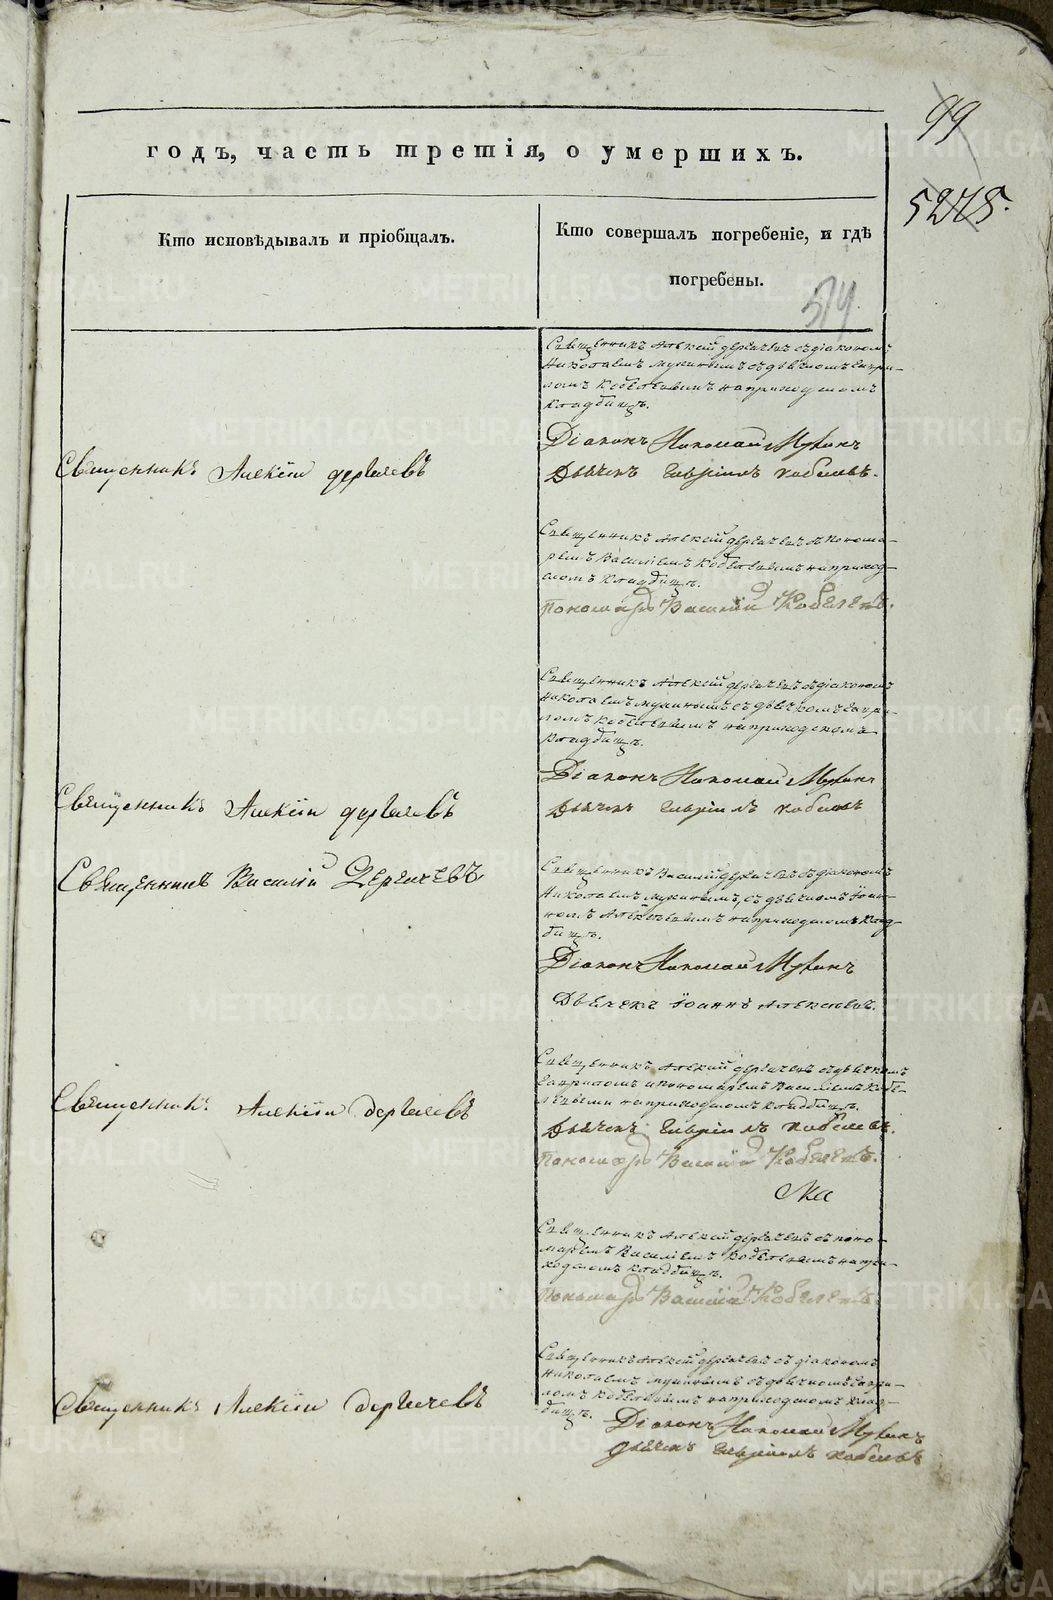 99
годъ, часть третія, о умершихъ.
5275.
Кто исповѣдывалъ и пріобщалъ.
Кто совершалъ погребеніе, и гдѣ
погребены.
514
Священникъ Алексій Дергачевъ съ діакономъ
Николаемъ Мукинымъ съ дьячкомъ Гаври-
ломъ Кобелевымъ на приходскомъ
кладбищѣ.
Діаконъ Николай Мукинъ
Священникъ Алексій Дергачевъ
Дьячекъ Гавріилъ Кобелевъ.
Священникъ Алексій Дергачевъ съ понома-
ремъ Василіемъ Кобелевымъ на приход-
скомъ кладбищѣ.
Пономарь Василій Кобелевъ.
Священникъ Алексій Дергачевъ съ діакономъ
Николаемъ Мукинымъ съ дьячкомъ Гаври-
ломъ Кобелевымъ на приходскомъ
кладбищѣ.
Діаконъ Николай Мукинъ
Священникъ Алексій Дергачевъ
Дьячекъ Гавріилъ Кобелевъ
Священникъ Василій Дергачевъ.
Священникъ Василій Дергачевъ съ діакономъ
Николаемъ Мукинымъ, съ дьячкомъ Іоан-
номъ Алексѣевымъ на приходскомъ клад-
бищѣ.
Діаконъ Николай Мукинъ
Дьячекъ Іоаннъ Алексѣевъ.
Священникъ Алексій Дергачевъ съ дьячкомъ
Гавриломъ и пономаремъ Василіемъ Кобе-
левыми на приходскомъ кладбищѣ.
Священникъ Алексій Дергачевъ
Дьячекъ Гавріилъ Кобелевъ.
Пономарь Василій Кобелевъ.
Священникъ Алексій Дергачевъ съ поно-
маремъ Василіемъ Кобелевымъ на при-
ходскомъ кладбищѣ.
Пономарь Василій Кобелевъ.
Священникъ Алексій Дергачевъ съ діакономъ
Николаемъ Мукинымъ съ дьячкомъ Гаври-
ломъ Кобелевымъ на приходскомъ клад-
бищѣ.
Священникъ Алексій Дергачевъ
Діаконъ Николай Мукинъ
Дьячекъ Гавріилъ Кобелевъ
METRIKI.GASO-URAL.RU